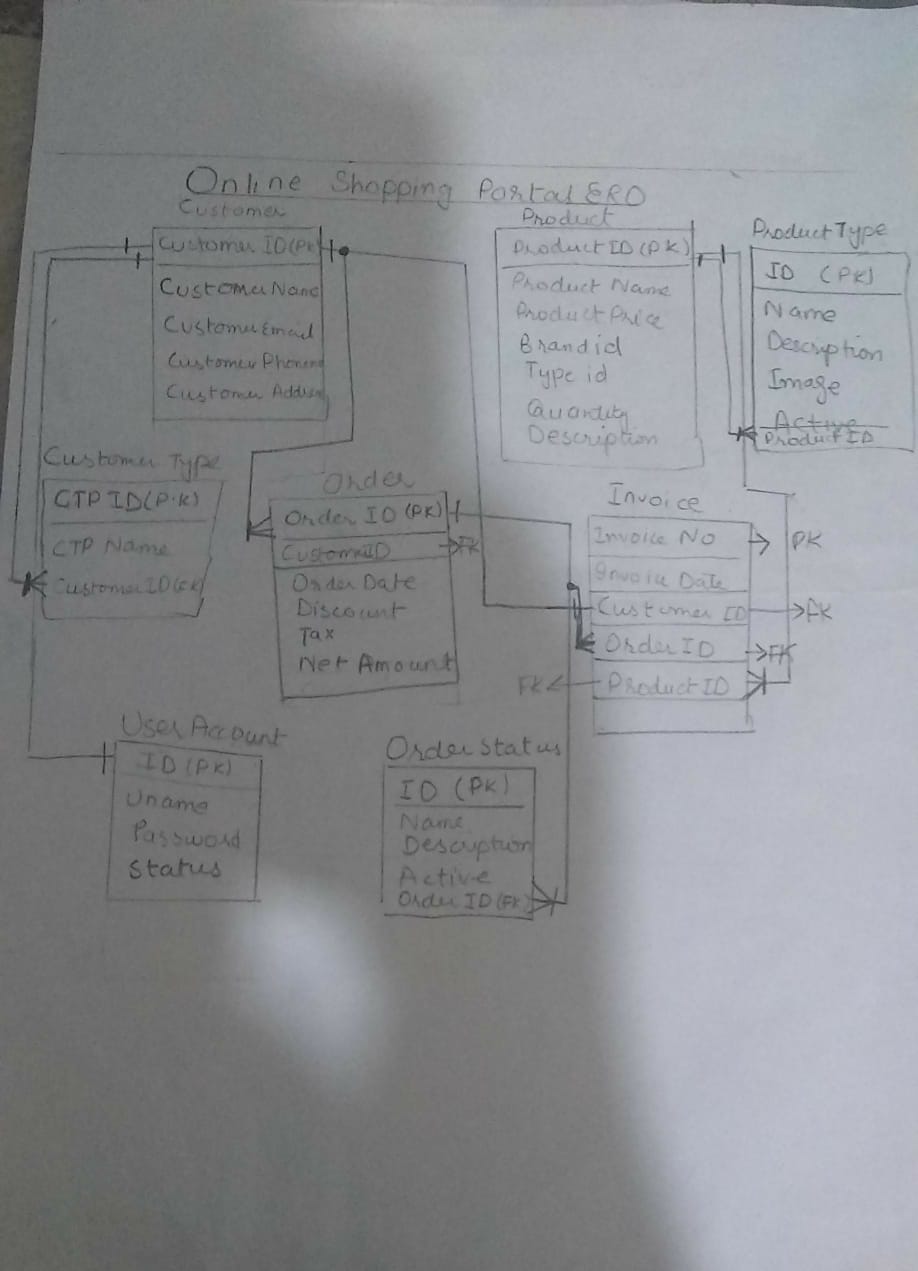 Online Shopping Portal ERD
Customer
Customer ID (PK)
Customer Name
Customer Email
Customer Phone
Customer Address
Product
Product ID (PK)
Product Name
Product Price
Brand id
Type id
Quantity
Description
Product Type
ID (PK)
Name
Description
Image
Active
Product ID
Customer Type
CTP ID (P.K)
CTP Name
Customer ID (FK)
Order
Order ID (PK)
Custom ID
FK
Order Date
Discount
Tax
Net Amount
Invoice
Invoice No
PK
Invoice Date
Customer ID
FK
Order ID
FK
FK
Product ID
User Account
ID (PK)
Uname
Password
Status
Order Status
ID (PK)
Name
Description
Active
Order ID (FK)